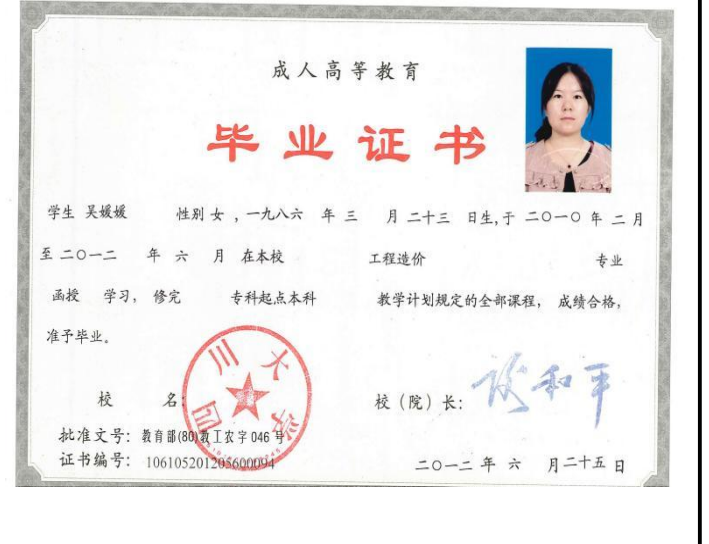 成人高等教育
毕业证书
学生 吴媛媛 性别 女 ，一九八六 年 三 月 二十三 日生，于 二〇一〇 年 二 月
至 二〇一二 年 六 月 在本校 工程造价 专业
函授 学习，修完 专科起点本科 教学计划规定的全部课程，成绩合格，
准予毕业。
四川大学
校 名：
校（院）长：谈和平
批准文号：教育部(80)教工农字 046 号
证书编号：106105201205600094
二〇一二 年 六 月二十五 日